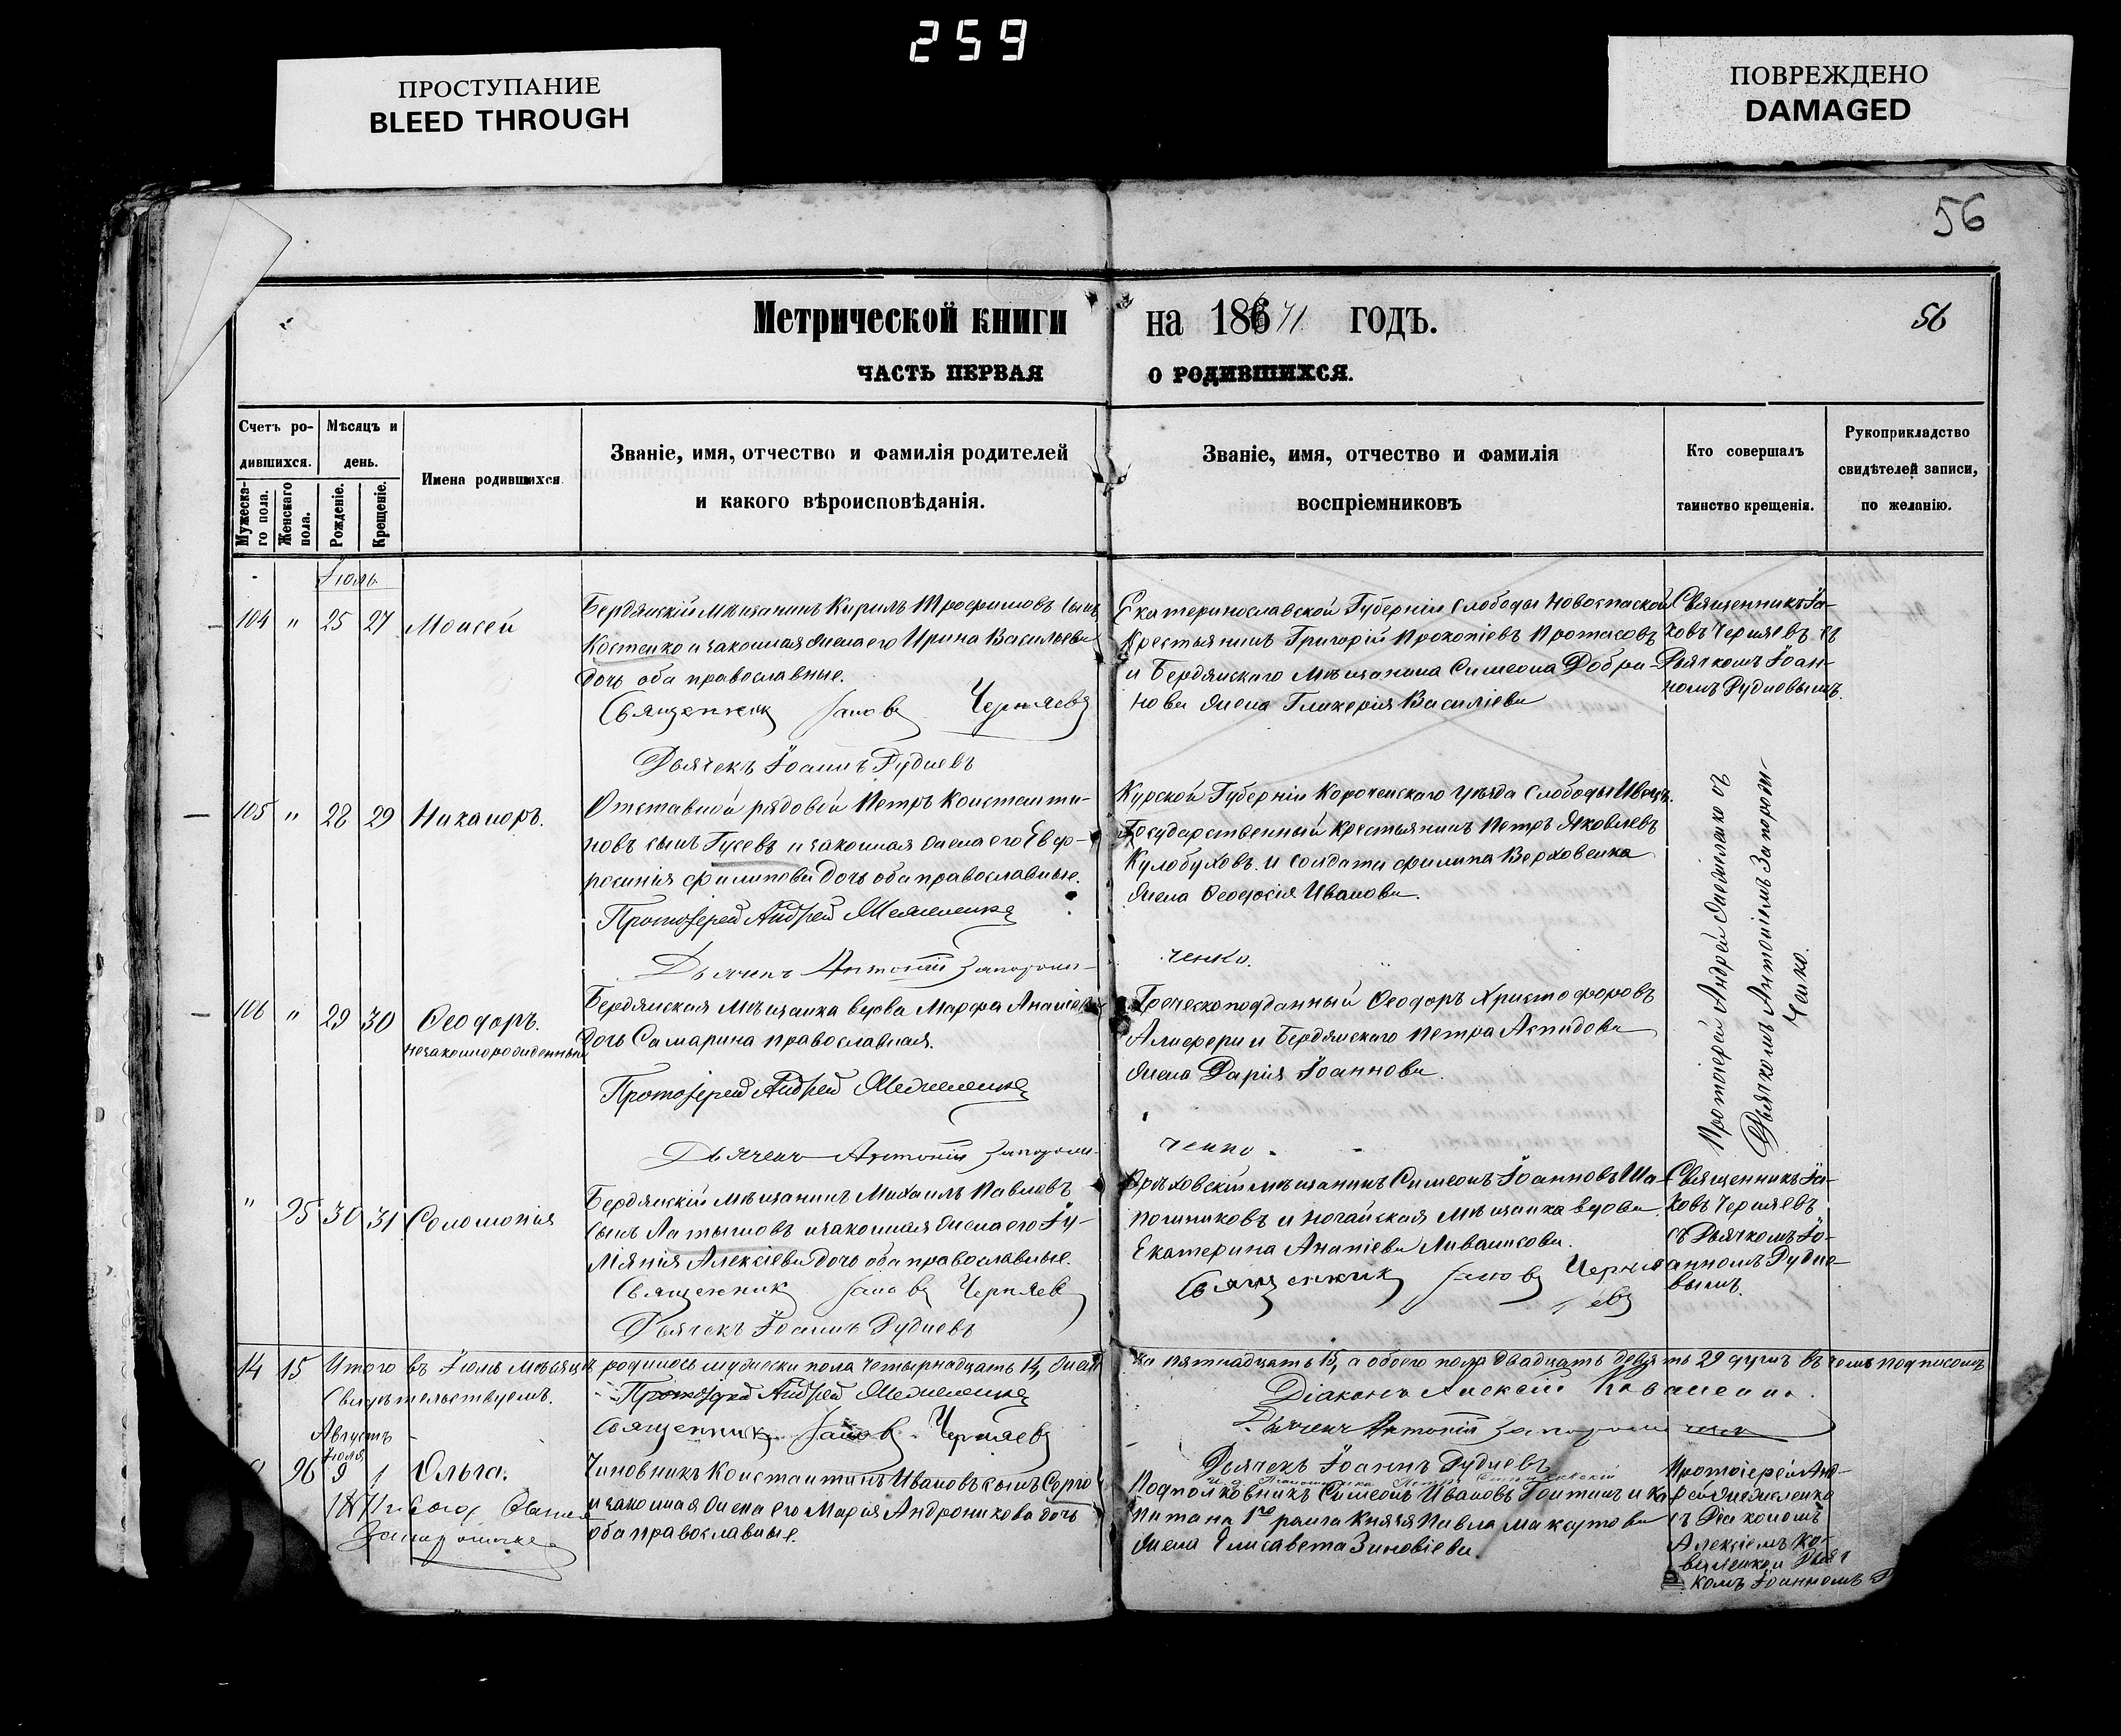 259
ПРОСТУПАНИЕ
BLEED THROUGH
ПОВРЕЖДЕНО
DAMAGED
56
Метрической книги на 186 71 годъ.
56
ЧАСТЬ ПЕРВАЯ О РОДИВШИХСЯ.
Счетъ родившихся.
Мужеска-го пола.
Женскаго пола.
Мѣсяцъ и день.
Рожденіе.
Крещеніе.
Имена родившихся
Званіе, имя, отчество и фамилія родителей
и какого вѣроисповѣданія.
Званіе, имя, отчество и фамилія
воспріемниковъ
Кто совершалъ
таинство крещенія.
Рукоприкладство
свидѣтелей записи,
по желанію.
Іюль
104 " 25 27 Моисей
Бердянскій мѣщанинъ Кирилъ Трофимовъ сынъ
Костенко и законная жена его Ирина Васильева
дочь оба православные.
Священникъ Іаковъ Черняевъ
Дьячекъ Іоаннъ Рудневъ
Екатеринославской Губерніи слободы Новоспаской
Крестьянинъ Григорій Прокопіевъ Протасовъ
и Бердянскаго мѣщанина Симеона Добри-
нова жена Гликерія Василіева
Священникъ Іа-
ковъ Черняевъ съ
Дьячкомъ Іоан-
номъ Рудневымъ.
105 " 28 29 Никаноръ.
Отставной рядовой Петръ Константи-
новъ сынъ Гусевъ и законная жена его Евф-
росинія Филипова дочь оба православные.
Протоіерей Андрей
Дьячекъ Антоній Запорож-
ченко.
Курской Губерніи Корочанскаго уѣзда слободы
Государственный крестьянинъ Петръ Яковлевъ
Кулобуховъ и солдата Филипа Верховенка
жена Феодосія Иванова.
Протоіерей Андрей съ
Дьячкомъ Антоніемъ Запорож-
ченко.
106 " 29 30 Феодоръ.
незаконнорожденный
Бердянская мѣщанка вдова Марфа Ананіева
дочь Самарина православная.
Протоіерей Андрей
Дьячекъ Антоній Запорож-
ченко.
Греческоподданный Феодоръ Христофоровъ
Алифери и Бердянскаго Петра Аспидова
жена Дарія Іоаннова.
" 95 30 31 Соломонія
Бердянскій мѣщанинъ Михаилъ Павловъ
сынъ Латышовъ и законная жена его Іу-
ліянія Алексіева дочь оба православные.
Священникъ Іаковъ Черняевъ
Дьячекъ Іоаннъ Рудневъ
Орѣховскій мѣщанинъ Симеонъ Іоанновъ Ша-
почниковъ и Ногайская мѣщанка вдова
Екатерина Ананіева
Священникъ Іаковъ Черня-
евъ
Священникъ Іа-
ковъ Черняевъ
съ Дьячкомъ Іо-
анномъ Рудне-
вымъ.
14 15 Итого въ Іюлѣ мѣсяцѣ родилось мужеска пола четырнадцать 14, женска пятнадцать 15, а обоего пола двадцать девять 29 душъ въ чемъ подписомъ
Свидѣтельствуемъ.
Протоіерей Андрей
Священникъ Іаковъ Черняевъ
Діаконъ Алексій Коваленко.
Дьячекъ Антоній Запорож ченко
Дьячекъ Іоаннъ Рудневъ
Августъ
Іюля
96 9 1 Ольга.
Чиновникъ Константинъ Ивановъ сынъ
и законная жена его Марія Андроникова дочь
оба православные.
Подполковникъ Симеонъ Ивановъ и Ка-
питана 1го ранга Князя Павла Максутова
жена Елисавета Зиновіева.
Протоіерей Анд-
рей
съ Діакономъ
Алексіемъ Ко-
валенко и Дьяч
комъ Іоанномъ Р